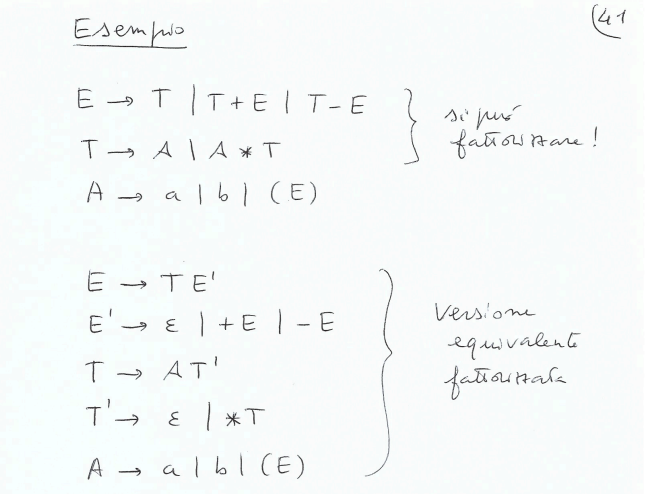 (41
Esempio
E → T | T+E | T-E
T → A | A * T
A → a | b | (E)
si può
fattorizzare!
E → T E'
E' → ε | +E | -E
T → A T'
T' → ε | *T
A → a | b | (E)
Versione
equivalente
fattorizzata